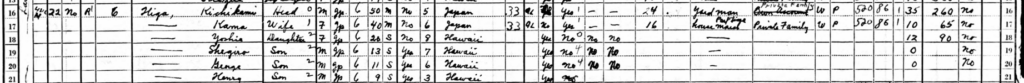 16 22 No R 6 Higa, Kishikami Head 0 M Jp 6 50 M No 5 Japan 33 Yes 1 — — 24 Yard man Private Family W P 520 86 1 35 260 No 16
17 — Kama Wife 1 F Jp 6 40 M No 6 Japan 33 Yes 1 — — 16 house maid Private Family W P 520 86 1 10 65 No 17
18 — Yoshio Daughter 2 F Jp 6 20 S No 8 Hawaii Yes No 0 No No — 12 90 No 18
19 — Shegiro Son 2 M Jp 6 13 S Yes 7 Hawaii Yes No 4 No No — 0 No 19
20 — George Son 2 M Jp 6 11 S Yes 6 Hawaii Yes No 4 No No — 0 No 20
21 — Henry Son 2 M Jp 6 9 S Yes 3 Hawaii Yes No 21